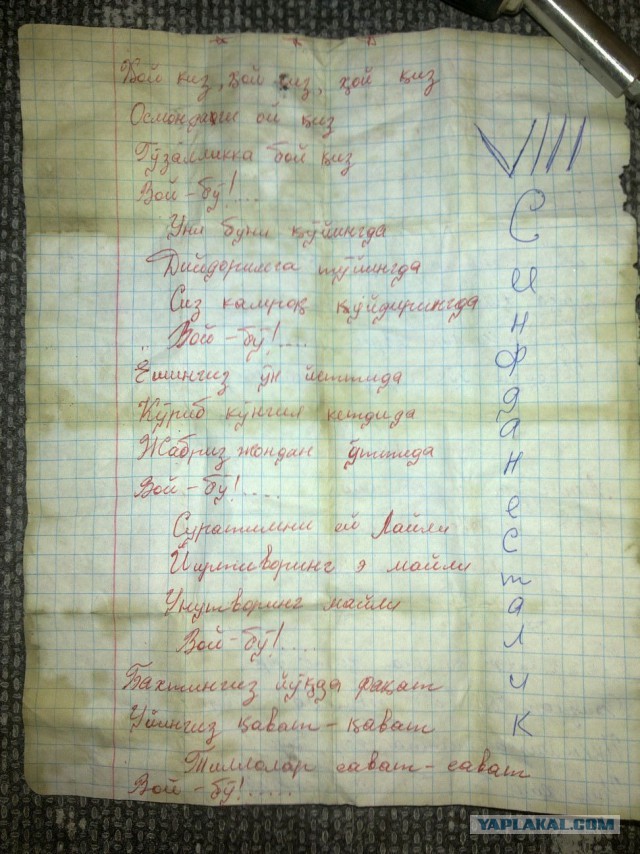 Ҳой қиз, ҳой қиз, ҳой қиз
Осмондаги ой қиз
Гўзалликка бой қиз
Вой-бў!....
Уни буни қўйингда
Дийдоримга тўйингда
Сиз камроқ куйдирингда
Вой-бў!....
Ёшингиз ўн еттида
Кўриб кўнгил кетдида
Жабриз жондан ўттида
Вой-бў!....
Суратимни ей Лайли
Йиртиворинг э майли
Унутворинг майли
Вой-бў!....
Бахтингиз йўқда фақат
Уйингиз қават-қават
Тиллолар сават-сават
Вой-бў!.....
VIII
Синфданесталик
YAPLAKAL.COM